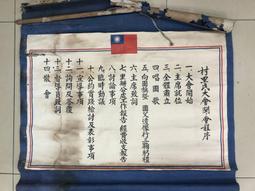 村里民大會開會程序
一、大會開始
二、主席就位
三、全體肅立
四、唱國歌
五、向國旗暨 國父遺像行三鞠躬禮
六、主席致詞
七、里辦公處工作報告 經費收支報告
八、討論事項
九、臨時動議
十、公約實踐檢討及表彰事項
十一、宣導事項
十二、詢問及答覆
十三、督導員致詞
十四、散會